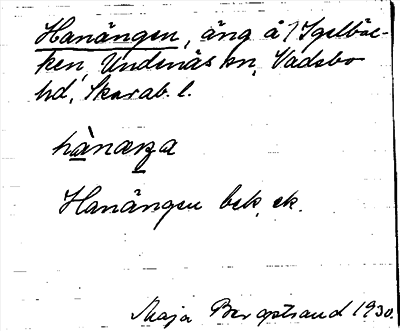 Hanängen, äng å Igelbäc-
ken, Undenäs sn, Vadsbo
hd, Skarab. l.
hànæŋa
Hanängen bek. ek.
Maja Bergstrand 1930.